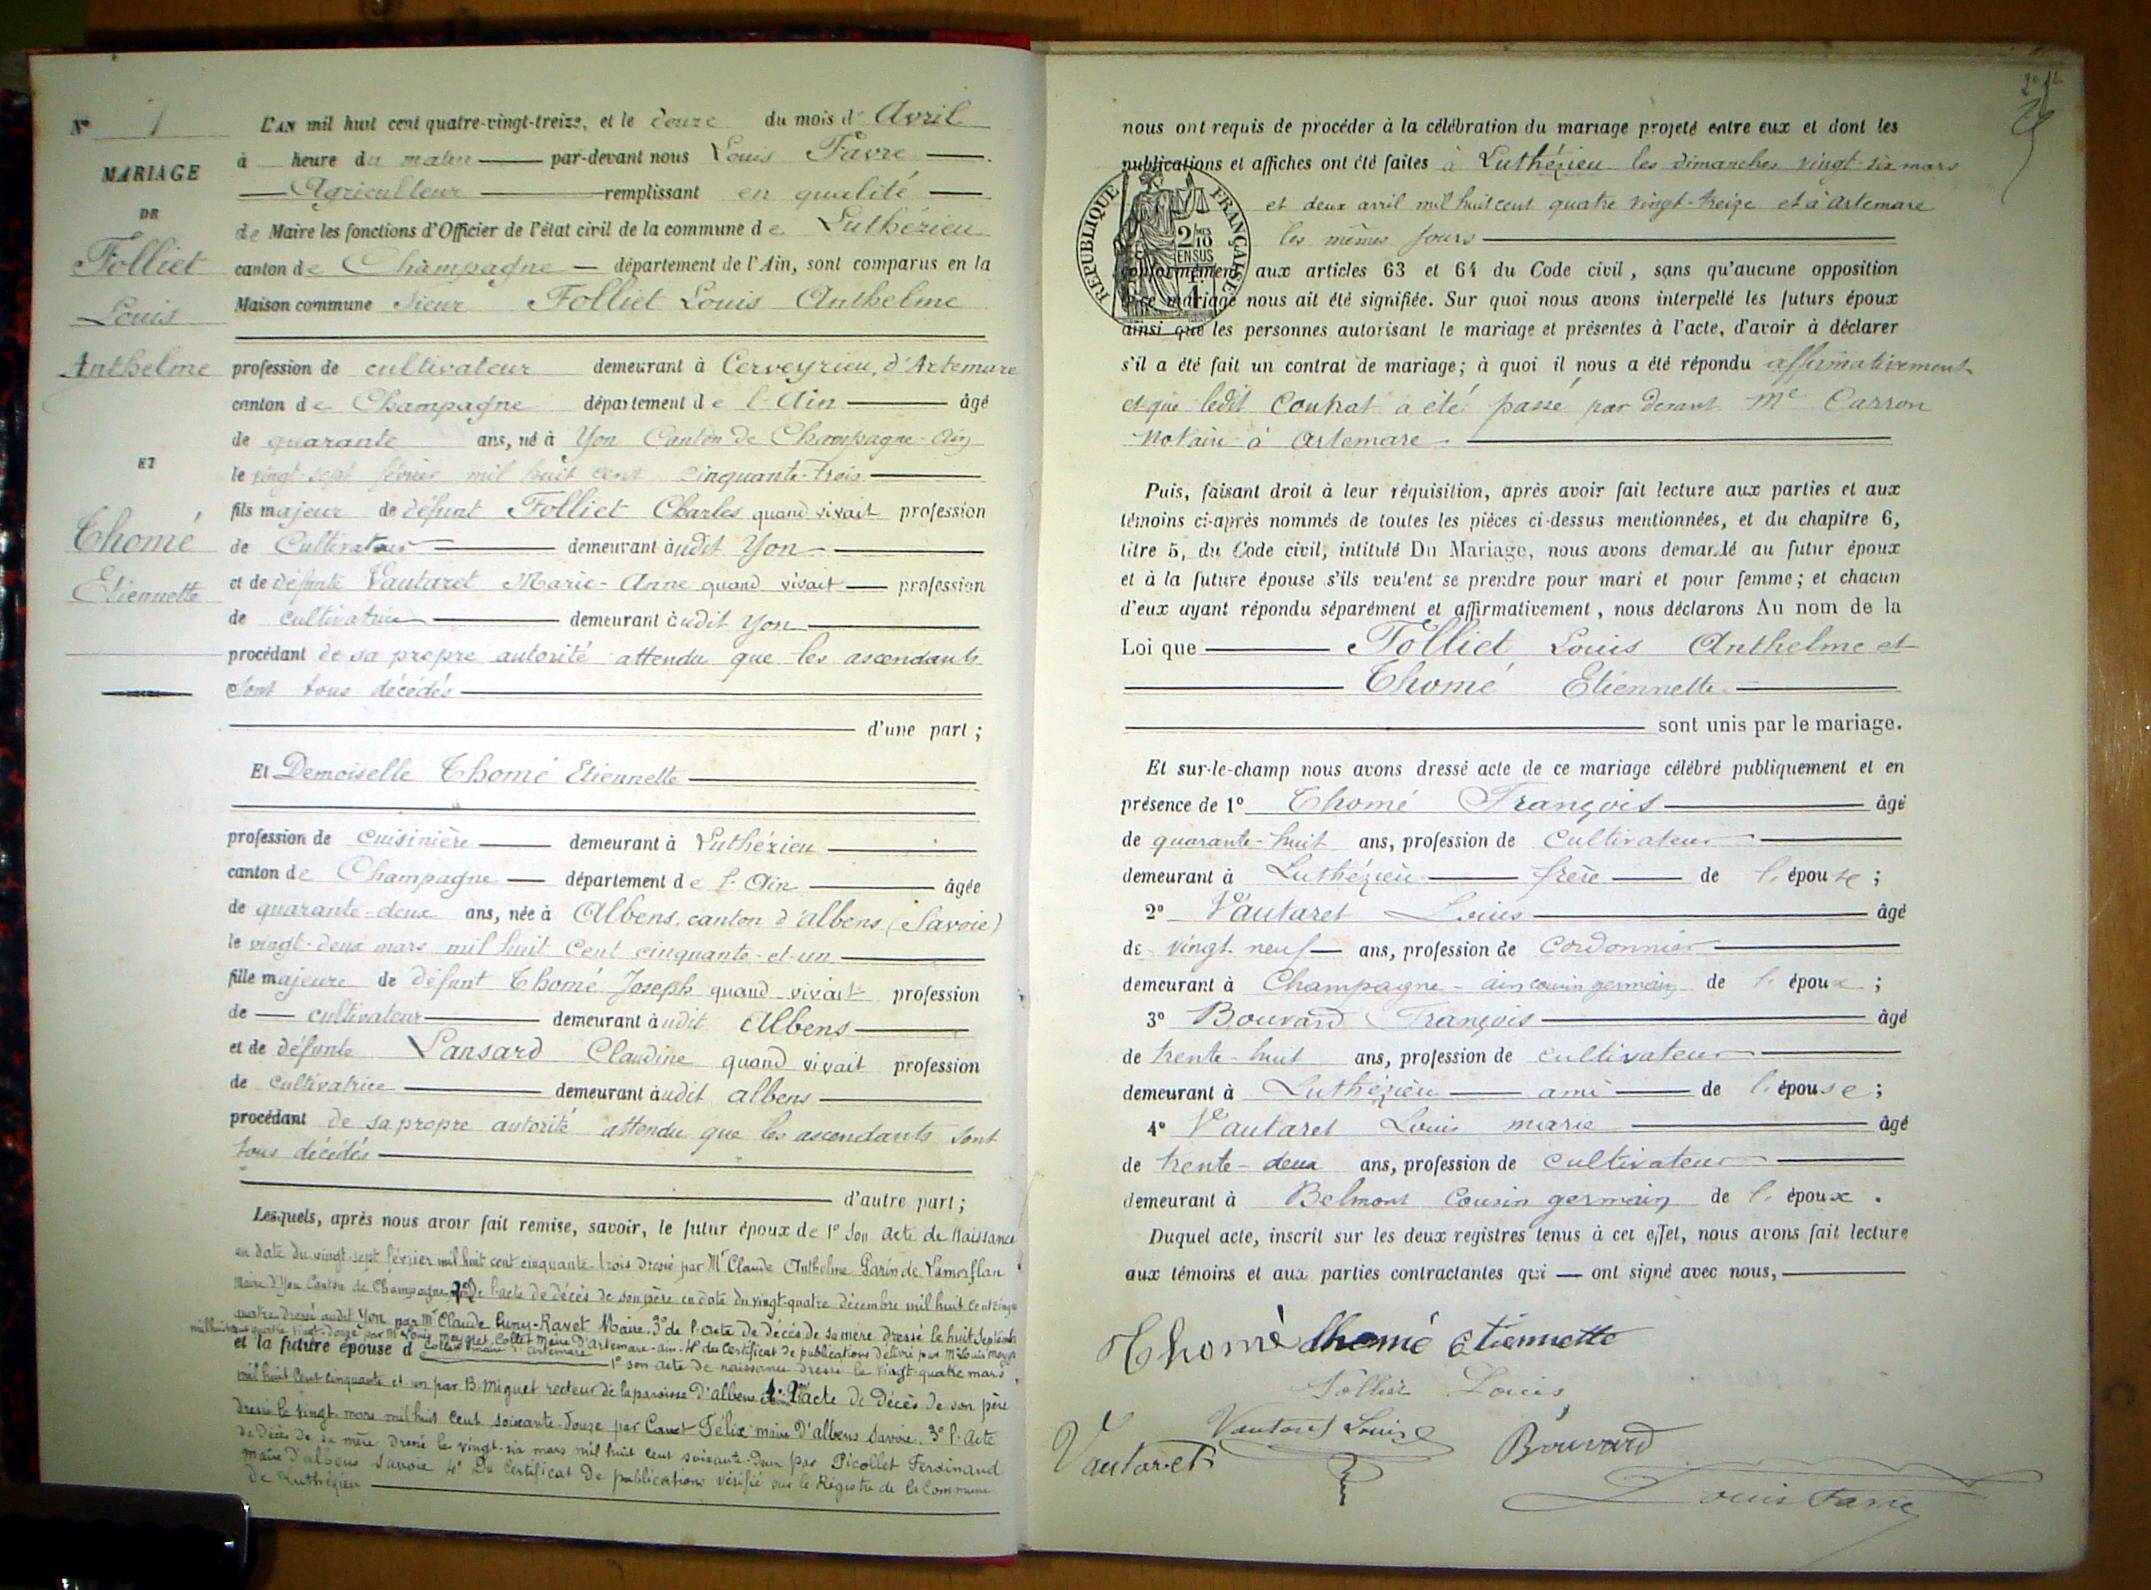 N° 1
MARIAGE
DE
Folliet
Louis
Anthelme
ET
Thomé
Etiennette
L'AN mil huit cent quatre-vingt-treize, et le douze du mois d' Avril
à heure du matin par-devant nous Louis Favre
Agriculteur remplissant en qualité
de Maire les fonctions d'Officier de l'état civil de la commune de Luthézieu
canton de Champagne département de l'Ain, sont comparus en la
Maison commune sieur Folliet Louis Anthelme
profession de cultivateur demeurant à Cerveyrieu, d'Artemare
canton de Champagne département de l'Ain âgé
de quarante ans, né à Yon Canton de Champagne-Ain
le vingt-sept février mil huit cent cinquante-trois
fils majeur de défunt Folliet Charles quand vivait profession
de Cultivateur demeurant àudit Yon
et de défunte Vautaret Marie-Anne quand vivait profession
de cultivatrice demeurant àudit Yon
procédant de sa propre autorité attendu que les ascendants
sont tous décédés
d'une part ;
Et Demoiselle Thomé Etiennette
profession de cuisinière demeurant à Luthézieu
canton de Champagne département de l'Ain âgée
de quarante-deux ans, née à Albens, canton d'albens (Savoie)
le vingt-deux mars mil huit cent cinquante-et-un
fille majeure de défunt Thomé Joseph quand vivait profession
de cultivateur demeurant àudit Albens
et de défunte Lansard Claudine quand vivait profession
de cultivatrice demeurant àudit albens
procédant de sa propre autorité attendu que les ascendants sont
tous décédés
d'autre part ;
Lesquels, après nous avoir fait remise, savoir, le futur époux de 1° Son acte de Naissance
en date du vingt-sept février mil huit cent cinquante trois dressé par Mr Claude Anthelme Garin de Lamorflan
Maire d'Yon Canton de Champagne 2° de l'acte de décès de son père en date du vingt-quatre décembre mil huit cent cinq
quatre dressé audit Yon par Mr Claude Cuny-Ravet Maire. 3° de l'acte de décès de sa mère dressé le huit Septembre
mil huit cent quatre vingt-douze par Mr Louis Meygret Collet Maire d'Artemare-ain-4° du Certificat de publications délivré par Mr Louis
et la future épouse d Collet Maire d'Artemare
1° son acte de naissance dressé le vingt-quatre mars
mil huit cent cinquante et un par B. Miguet recteur de la paroisse d'albens 2° l'acte de Décès de son père
dressé le vingt mars mil huit cent soixante-douze par Canet Félix maire d'albens Savoie. 3° l'Acte
de Décès de sa mère dressé le vingt-six mars mil huit cent soixante-Deux par Picollet Ferdinand
maire d'albens Savoie 4° Du Certificat de publications vérifié sur le Régistre de la Commune
de Luthézieu
nous ont requis de procéder à la célébration du mariage projeté entre eux et dont les
publications et affiches ont été faites à Luthézieu les dimanches vingt-six mars
et deux avril mil huit cent quatre vingt-treize et à artemare
les mêmes jours
conformément aux articles 63 et 64 du Code civil, sans qu'aucune opposition
à ce mariage nous ait été signifiée. Sur quoi nous avons interpellé les futurs époux
ainsi que les personnes autorisant le mariage et présentes à l'acte, d'avoir à déclarer
s'il a été fait un contrat de mariage; à quoi il nous a été répondu affirmativement
et que ledit Contrat a été passé par devant Me Carron
Notaire à Artemare
REPUBLIQUE FRANÇAISE
2/10 EN SUS
Puis, faisant droit à leur réquisition, après avoir fait lecture aux parties et aux
témoins ci-après nommés de toutes les pièces ci-dessus mentionnées, et du chapitre 6,
titre 5, du Code civil, intitulé Du Mariage, nous avons demandé au futur époux
et à la future épouse s'ils veulent se prendre pour mari et pour femme; et chacun
d'eux ayant répondu séparément et affirmativement, nous déclarons Au nom de la
Loi que Folliet Louis Anthelme et
Thomé Etiennette
sont unis par le mariage.
Et sur-le-champ nous avons dressé acte de ce mariage célébré publiquement et en
présence de 1° Thomé François âgé
de quarante-huit ans, profession de cultivateur
demeurant à Luthézieu frère de l'épouse ;
2° Vautaret Louis âgé
de vingt-neuf ans, profession de cordonnier
demeurant à Champagne-ain cousin germain de l'époux ;
3° Bouvard François âgé
de trente-huit ans, profession de cultivateur
demeurant à Luthézieu ami de l'épouse ;
4° Vautaret Louis marie âgé
de trente-deux ans, profession de cultivateur
demeurant à Belmont Cousin germain de l'époux .
Duquel acte, inscrit sur les deux registres tenus à cet effet, nous avons fait lecture
aux témoins et aux parties contractantes qui ont signé avec nous,
Thomé Thomé Etiennette
Folliet Louis
Vautaret Louis
Vautaret
Bouvard
Louis Favre